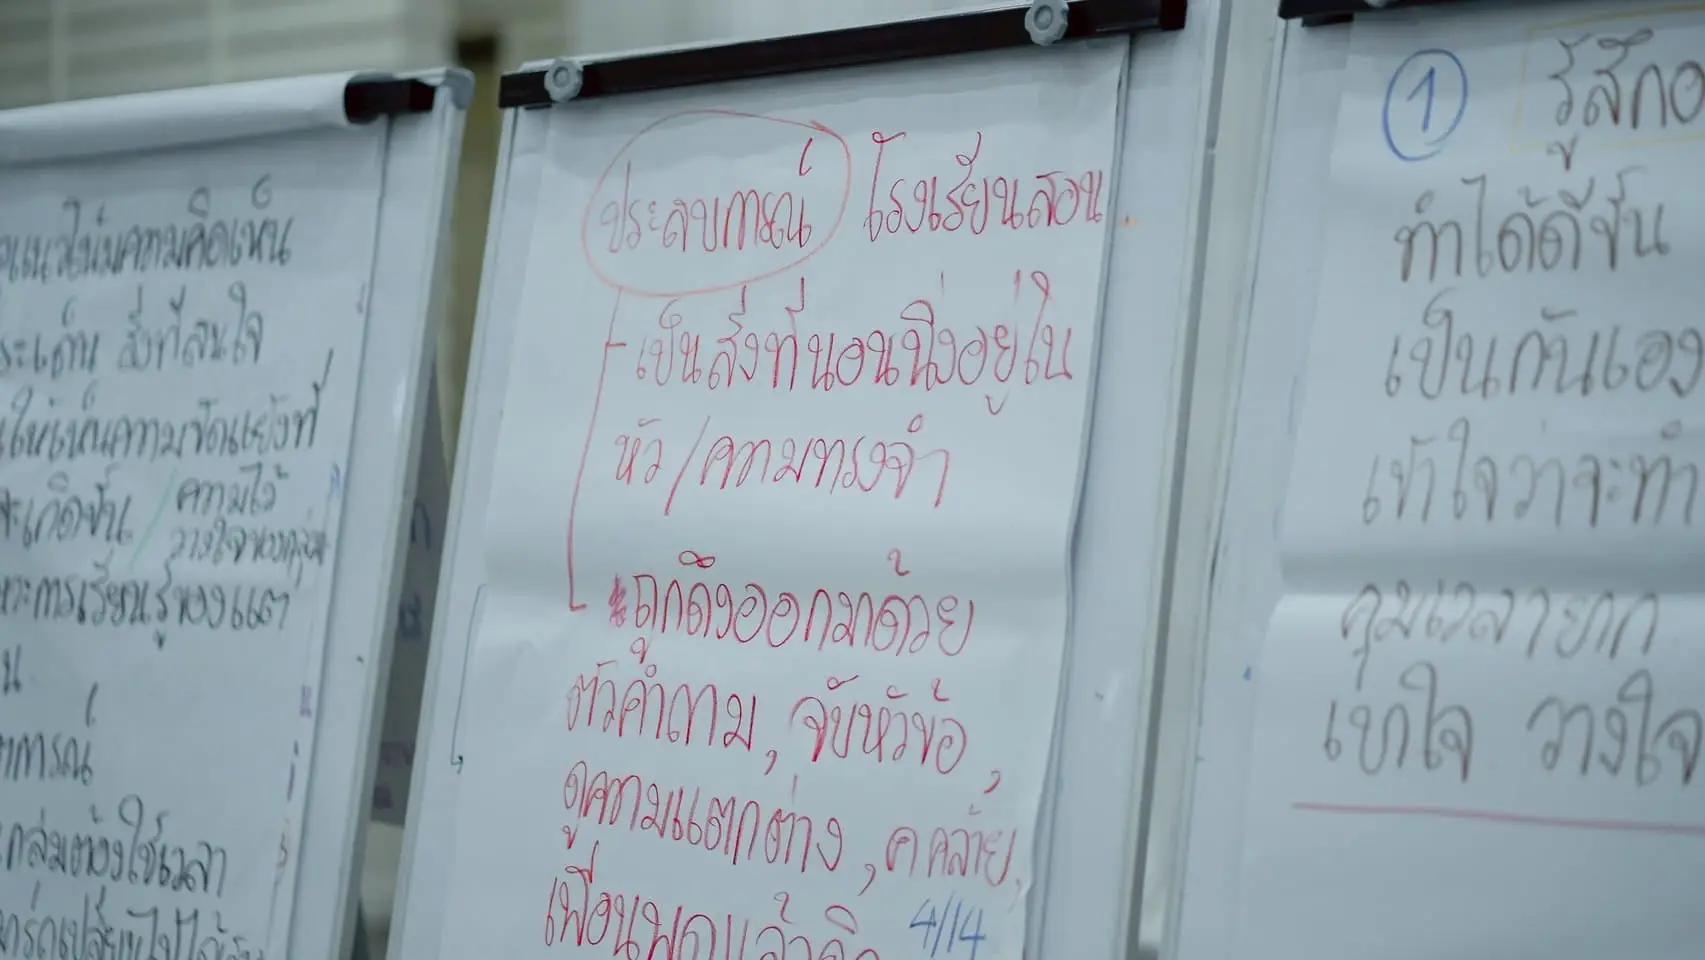 ความคิดเห็น
สิ่งที่สนใจ
ให้เห็นความขัดแย้งที่
เกิดขึ้น / ความไว้
วางใจของกลุ่ม
การเรียนรู้ของแต่
น
การณ์
กลุ่มต้องใช้เวลา
ประสบการณ์ โรงเรียนสอน
- เป็นสิ่งที่นอนนิ่งอยู่ใน
หัว / ความทรงจำ
ถูกดึงออกมาด้วย
ตัวคำถาม, จับหัวข้อ,
ดูความแตกต่าง, ค คล้าย,
เพื่อนพูดแล้ว
4/14
1 รู้สึก
ทำได้ดีขึ้น
เป็นกันเอง
เข้าใจว่าจะทำ
คุมเวลายาก
เขาใจ วางใจ